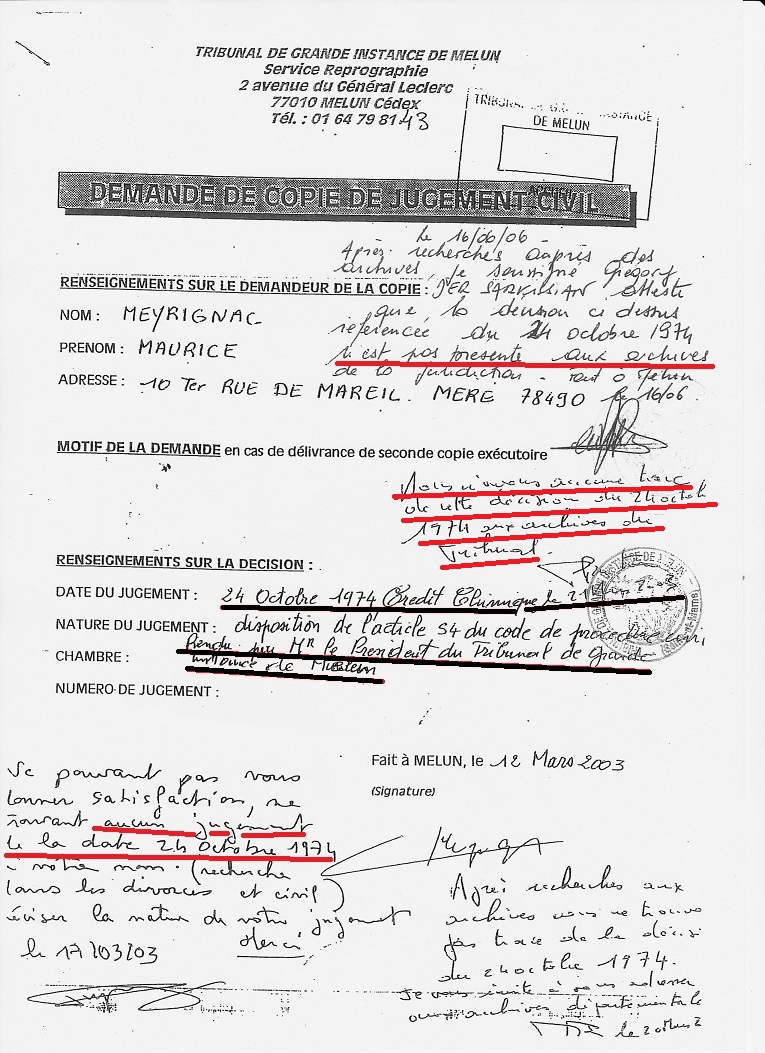 TRIBUNAL DE GRANDE INSTANCE DE MELUN
Service Reprographie
2 avenue du Général Leclerc
77010 MELUN Cédex
Tél. : 01 64 79 81 43
TRIBUNAL DE INSTANCE
DE MELUN
DEMANDE DE COPIE DE JUGEMENT CIVIL
le 16/06/06 -
Après recherches auprès des
archives, je soussigné Grégory
RENSEIGNEMENTS SUR LE DEMANDEUR DE LA COPIE : DER SARKISSIAN atteste
que, la décision ci dessus
NOM : MEYRIGNAC
référencée du 24 octobre 1974
PRENOM : MAURICE
n'est pas présente aux archives
de la juridiction - Fait à Melun
ADRESSE : 10 Ter RUE DE MAREIL. MERE 78490
le 16/06.
MOTIF DE LA DEMANDE en cas de délivrance de seconde copie exécutoire
Nous n'avons aucune trace
de cette décision du 24 octob
1974 aux archives du
Tribunal.
RENSEIGNEMENTS SUR LA DECISION :
DATE DU JUGEMENT : 24 Octobre 1974 Credit Chimique le 21
NATURE DU JUGEMENT : disposition de l'article 54 du code de procedure
CHAMBRE : Rendu par Mr le President du Tribunal de Grande
instance de
NUMERO DE JUGEMENT :
Fait à MELUN, le 12 Mars 2003
(Signature)
Ne pouvant pas vous
donner satisfaction, ne
trouvant aucun jugement
de la date 24 Octobre 1974
à votre nom. (recherche
dans les divorces et civil)
réviser la nature de votre jugement
Merci
le 17/03/03
Après recherches aux
archives nous ne trouvons
pas trace de la décisi
du 24 octobre 1974.
Je vous invite à vous adresser
aux archives départementale
le 20